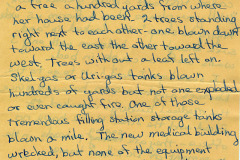 a tree a hundred yards from where
her house had been 2 trees standing
right next to each other - one blown down
toward the east the other toward the
west. Trees without a leaf left on.
Skelgas or Urigas tanks blown
hundreds of yards but not one exploded
or even caught fire. One of those
tremendous filling station storage tanks
blown a mile. The new medical building
wrecked, but none of the equipment